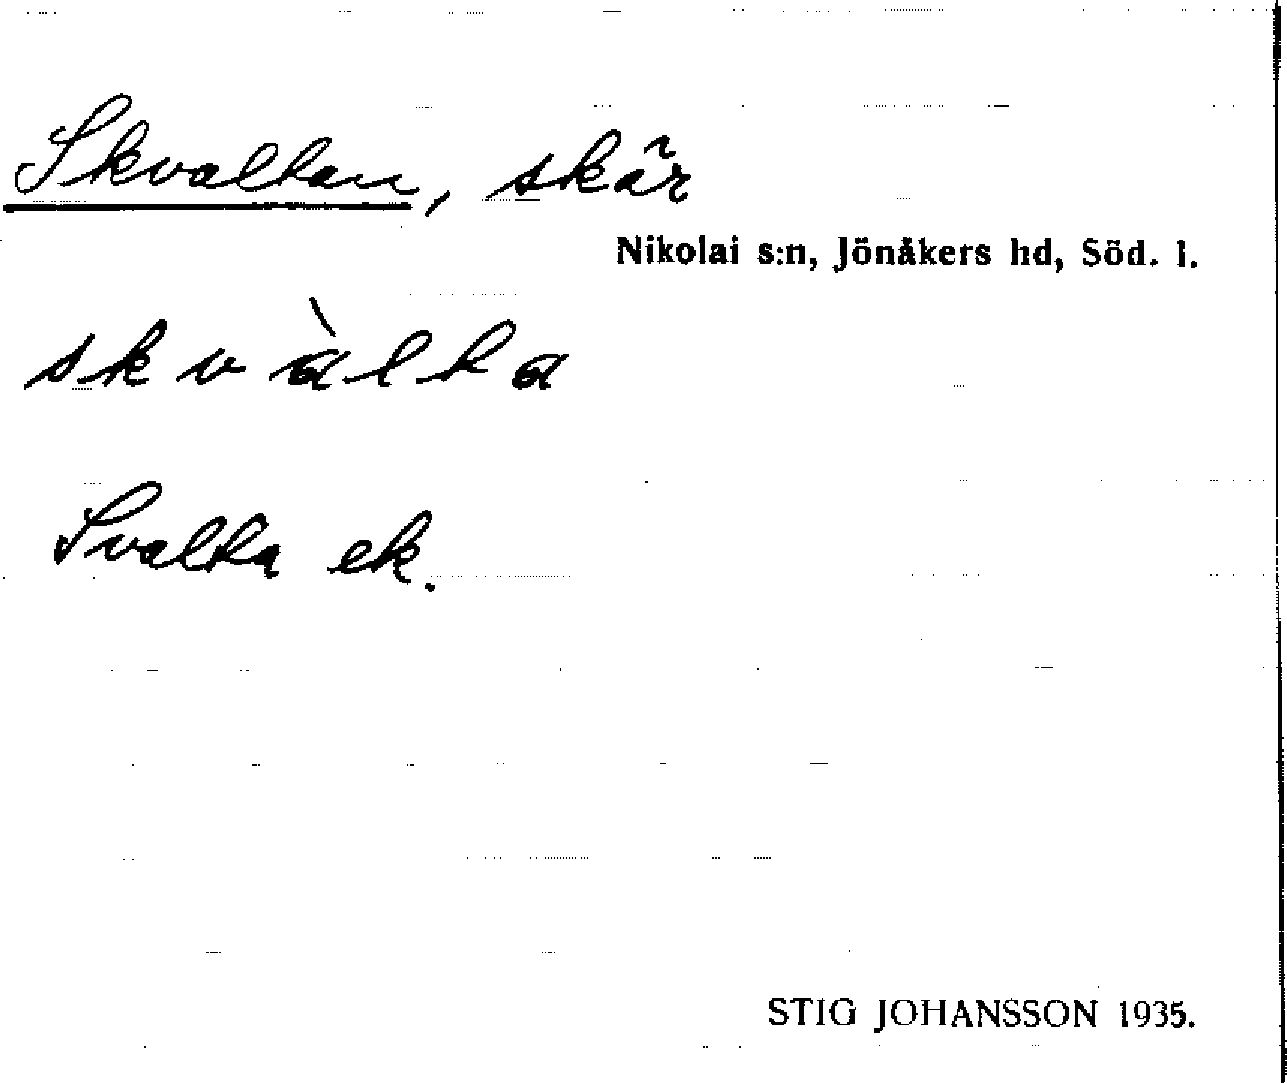 Skvalkan, skär
Nikolai s:n, Jönåkers hd, Söd. l.
skvàlka
Svalka ek.
STIG JOHANSSON 1935.